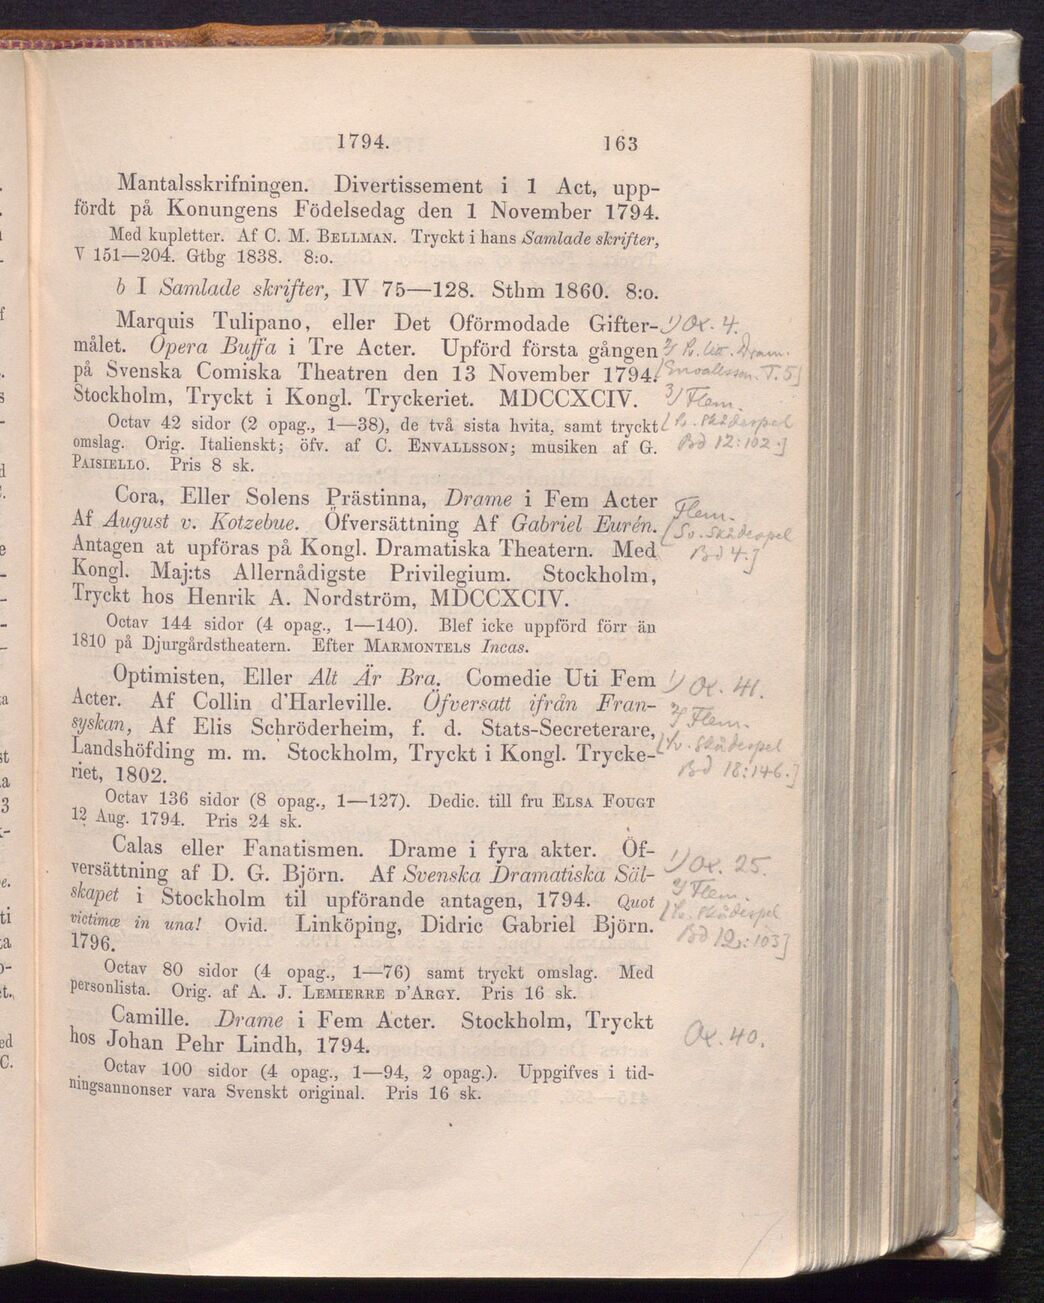 1794. 163
Mantalsskrifningen. Divertissement i 1 Act, upp-
fördt på Konungens Födelsedag den 1 November 1794.
Med kupletter. Af C. M. BELLMAN. Tryckt i hans Samlade skrifter,
V 151—204. Gtbg 1838. 8:o.
b I Samlade skrifter, IV 75—128. Sthm 1860. 8:o.
Marquis Tulipano, eller Det Oförmodade Gifter- 1) Ox. 4.
målet. Opera Buffa i Tre Acter. Upförd första gången
på Svenska Comiska Theatren den 13 November 1794. [Envallsson. T. 5]
Stockholm, Tryckt i Kongl. Tryckeriet. MDCCXCIV. 3) Flem.
Octav 42 sidor (2 opag., 1—38), de två sista hvita, samt tryckt
omslag. Orig. Italienskt; öfv. af C. ENVALLSSON; musiken af G. Bd 12:102.]
PAISIELLO. Pris 8 sk.
Cora, Eller Solens Prästinna, Drame i Fem Acter Flem.
Af August v. Kotzebue. Öfversättning Af Gabriel Eurén. [Sv. Skådespel
Antagen at upföras på Kongl. Dramatiska Theatern. Med Bd 4.]
Kongl. Maj:ts Allernådigste Privilegium. Stockholm,
Tryckt hos Henrik A. Nordström, MDCCXCIV.
Octav 144 sidor (4 opag., 1—140). Blef icke uppförd förr än
1810 på Djurgårdstheatern. Efter MARMONTELS Incas.
Optimisten, Eller Alt Är Bra. Comedie Uti Fem 1) Ox. 41.
Acter. Af Collin d'Harleville. Öfversatt ifrån Fran- 2) Flem.
syskan, Af Elis Schröderheim, f. d. Stats-Secreterare,
Landshöfding m. m. Stockholm, Tryckt i Kongl. Trycke- Skådespel
riet, 1802. Bd 18:146.]
Octav 136 sidor (8 opag., 1—127). Dedic. till fru ELSA FOUGT
12 Aug. 1794. Pris 24 sk.
Calas eller Fanatismen. Drame i fyra akter. Öf-
versättning af D. G. Björn. Af Svenska Dramatiska Säl- 1) Ox. 25.
skapet i Stockholm til upförande antagen, 1794. Quot 2) Flem.
victimæ in una! Ovid. Linköping, Didric Gabriel Björn. Skådespel
1796. Bd 12:103]
Octav 80 sidor (4 opag., 1—76) samt tryckt omslag. Med
personlista. Orig. af A. J. LEMIERRE D'ARGY. Pris 16 sk.
Camille. Drame i Fem Acter. Stockholm, Tryckt
hos Johan Pehr Lindh, 1794. Ox. 40.
Octav 100 sidor (4 opag., 1—94, 2 opag.). Uppgifves i tid-
ningsannonser vara Svenskt original. Pris 16 sk.